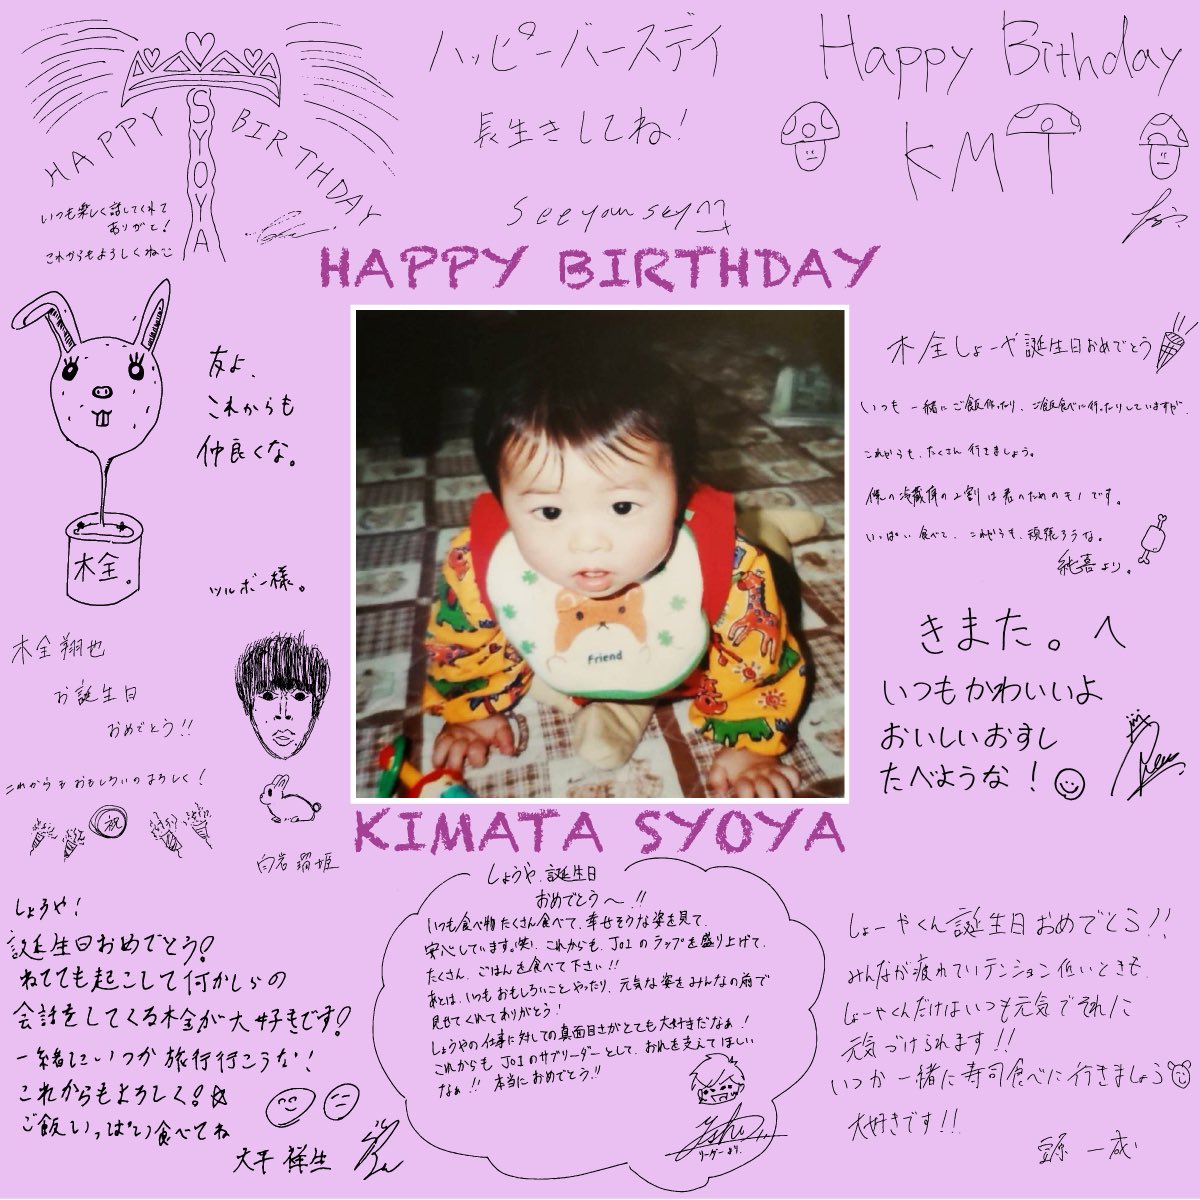 HAPPY BIRTHDAY
SYOYA
いつも楽しく話してくれて
ありがと!
これからもよろしくね
ハッピーバースデイ
長生きしてね!
See you sky
Happy Bithday
KMT
HAPPY BIRTHDAY
友よ、
これからも
仲良くな。
木全。
ツルボー様。
Friend
木全しょーや誕生日おめでとう
いつも一緒にご飯作ったり、ご飯食べに行ったりしていますが、
これからも、たくさん行きましょう。
俺の冷蔵庫の2割は君のためのモノです。
いっぱい食べて、これからも、頑張ろうな。
純喜より。
きまた。へ
いつもかわいいよ
おいしいおすし
たべような!
木全翔也
お誕生日
おめでとう!!
これからもおもしろいのよろしく!
祝
白岩瑠姫
KIMATA SYOYA
しょうや!
誕生日おめでとう!
ねてても起こして何かしらの
会話をしてくる木全が大好きです!
一緒にいつか旅行行こうな!
これからもよろしく!
ご飯いっぱい食べてね
大平祥生
しょうや、誕生日
おめでとう〜!!
いつも食べ物たくさん食べて、幸せそうな姿を見て、
安心しています。(笑) これからも、JO1のラップを盛り上げて、
たくさん、ごはんを食べて下さい!!
あとは、いつもおもしろいことやったり、元気な姿をみんなの前で
見せてくれてありがとう!
しょうやの仕事に対しての真面目さがとても大好きだなぁ!
これからも、JO1のサブリーダーとして、おれを支えてほしい
なぁ!! 本当におめでとう!!
リーダーより。
しょーやくん誕生日おめでとう!!
みんなが疲れていてテンション低いときも、
しょーやくんだけはいつも元気でそれに
元気づけられます!!
いつか一緒に寿司食べに行きましょう
大好きです!!
豆原一成